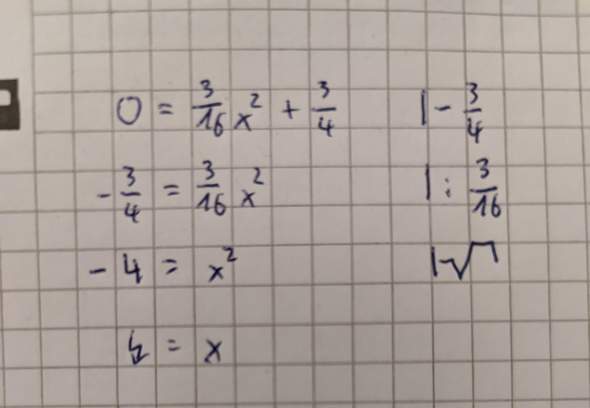 0 = 3/16 x² + 3/4 | - 3/4
- 3/4 = 3/16 x² | : 3/16
- 4 = x² | √
↯ = x